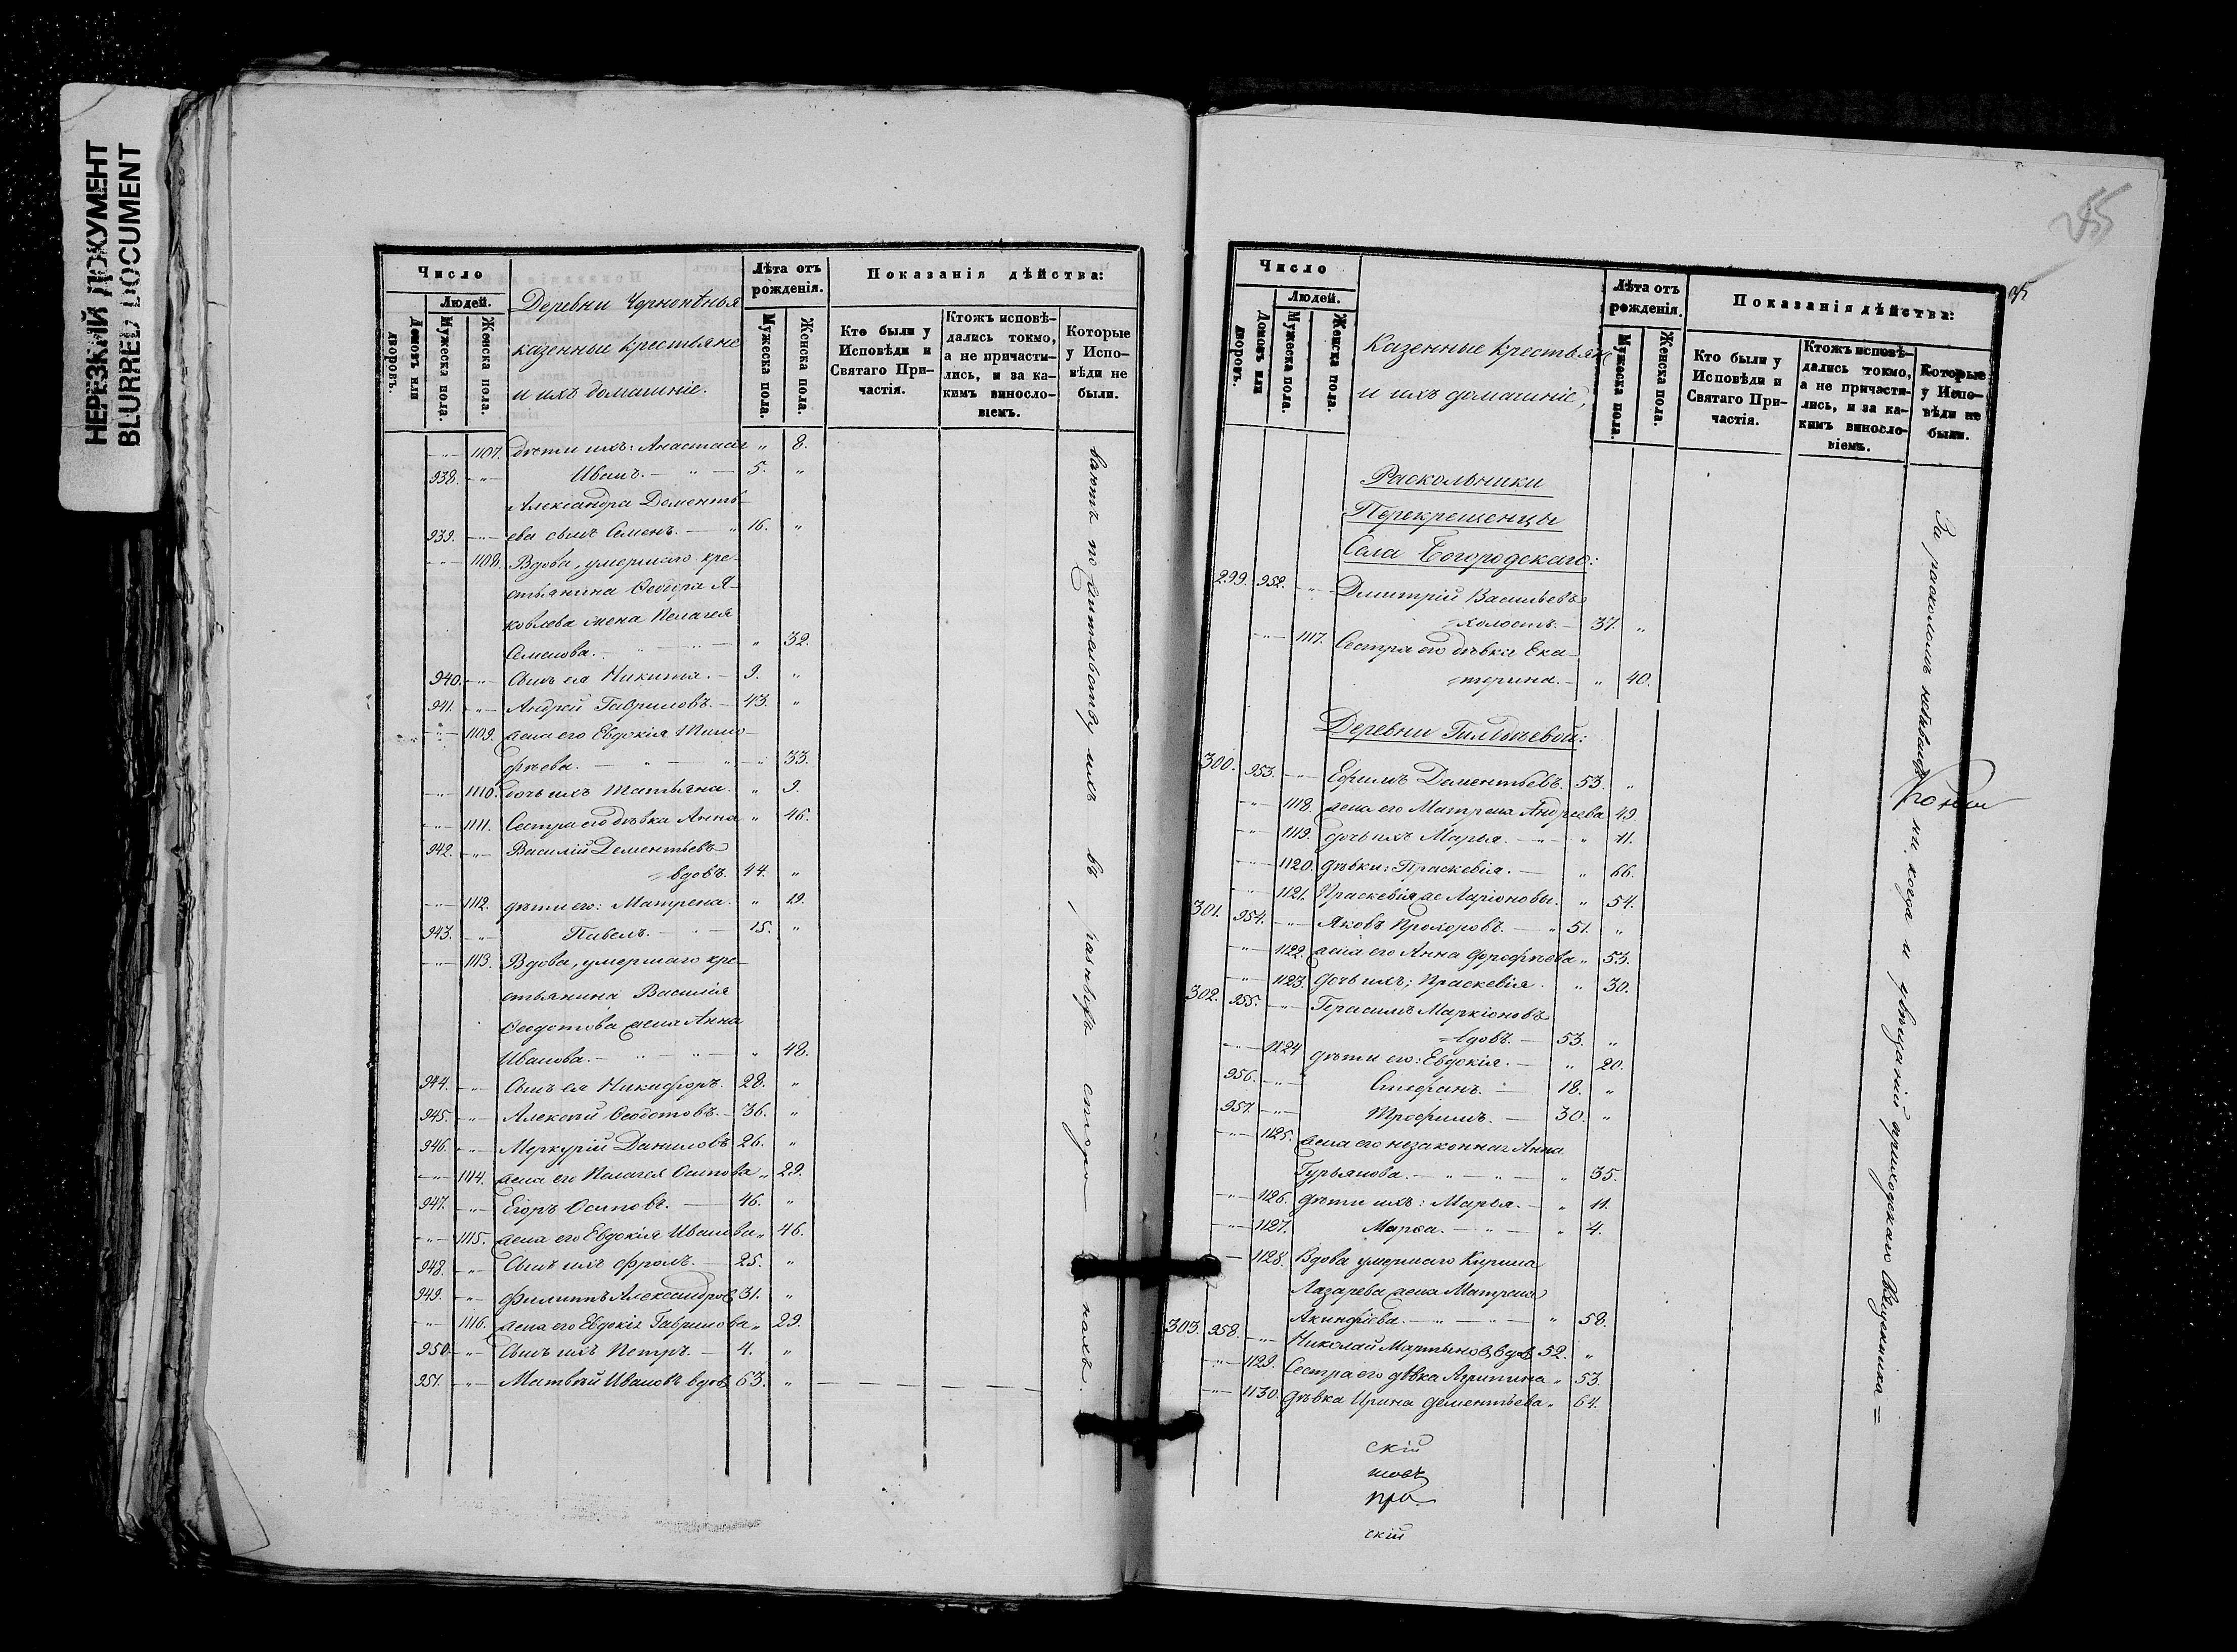 НЕРЕЗКИЙ ДОКУМЕНТ
BLURRED DOCUMENT
Число
Людей.
Домовъ или дворовъ.
Мужеска пола.
Женска пола.
Деревни
казенные крестьяне
и ихъ домашніе.
Лѣта отъ рожденія.
Мужеска пола.
Женска пола.
Показанія дѣйства:
Кто были у Исповѣди и Святаго Причастія.
Ктожъ исповѣдались токмо, а не причастились, и за какимъ винословіемъ.
Которые у Исповѣди не были.
-"- 1107. дѣти ихъ: Анастасія " 8.
938. -"- Иванъ. - " - 5. "
Александра Дементь-
939. -"- ева сынъ Семенъ. - " 16. "
-"- 1108. Вдова, умершаго кре-
стьянина Ѳеодора Я-
ковлева жена Пелагея
Семенова. - " - " - " 32.
940. -"- Сынъ ея Никита. - 9. "
941. -"- Андрей Гавриловъ. - 43. "
-"- 1109. жена его Евдокія Тимо-
фѣева. - " - " - " 33.
-"- 1110. дочь ихъ Татьяна. " 9.
-"- 1111. Сестра его дѣвка Анна " 46.
942. -"- Василій Дементьевъ
вдовъ. 44. "
-"- 1112. дѣти его: Матрена. " 19.
943. -"- Павелъ. - " - 15. "
-"- 1113. Вдова, умершаго кре-
стьянина Василія
Ѳеодотова жена Анна
Иванова. - " - " - " 48.
944. -"- Сынъ ея Никифоръ. 28. "
945. -"- Алексѣй Ѳеодотовъ. - 36. "
946. -"- Меркурій Даниловъ 26. "
-"- 1114. жена его Пелагея Осипова " 29.
947. -"- Егоръ Осиповъ. - 46. "
-"- 1115. жена его Евдокія Иванова " 46.
948. -"- Сынъ ихъ Фролъ. - 25. "
949. -"- Филиппъ Александровъ 31. "
-"- 1116. жена его Евдокія Гаврилова " 29.
950. -"- Сынъ ихъ Петръ. - 4. "
951. -"- Матвѣй Ивановъ вдовъ 63. "
ихъ въ разныхъ
255
Число
Людей.
Домовъ или дворовъ.
Мужеска пола.
Женска пола.
Казенные крестьяне
и ихъ домашніе,
Лѣта отъ рожденія.
Мужеска пола.
Женска пола.
Показанія дѣйства:
Кто были у Исповѣди и Святаго Причастія.
Ктожъ исповѣдались токмо, а не причастились, и за какимъ винословіемъ.
Которые у Исповѣди не были.
Раскольники
Перекрещенцы
Села Богородскаго:
299. 952. -"- Дмитрій Васильевъ
холостъ. - 37. "
-"- 1117. Сестра его дѣвка Ека-
терина. - " 40.
300. 953. -"- Ефимъ Дементьевъ. 53. "
-"- 1118. жена его Матрена Андреева 49.
-"- 1119. дочь ихъ Марья. - " - " 11.
-"- 1120. дѣвки: Праскевія. - " 66.
-"- 1121. Праскевія же Ларіоновы. " 54.
301. 954. -"- Яковъ Прохоровъ. - " 51. "
-"- 1122. жена его Анна Дорофѣева " 53.
-"- 1123. дочь ихъ; Праскевія. " 30.
302. 955. -"- Герасимъ Маркіоновъ
вдовъ. - 53. "
-"- 1124 дѣти его: Евдокія. - " 20.
956. -"- Стефанъ. - 18. "
957. -"- Трофимъ. - 30. "
-"- 1125. жена его незаконная Анна
Гурьянова. - " - " - " 35.
-"- 1126. дѣти ихъ: Марья. - " 11.
-"- 1127. Марѳа. - " - " 4.
- 1128. Вдова умершаго Кирила
Лазарева жена Матрена
Акинфіева. - " - " - " 58.
303. 958. -"- Николай Мартыновъ вдовъ 52. "
-"- 1129. Сестра его дѣвка Агрипина " 53.
-"- 1130. дѣвка Ирина Дементьева " 64.
скій
скій
За расколомъ ни когда и увѣщаній приходскаго Священника =